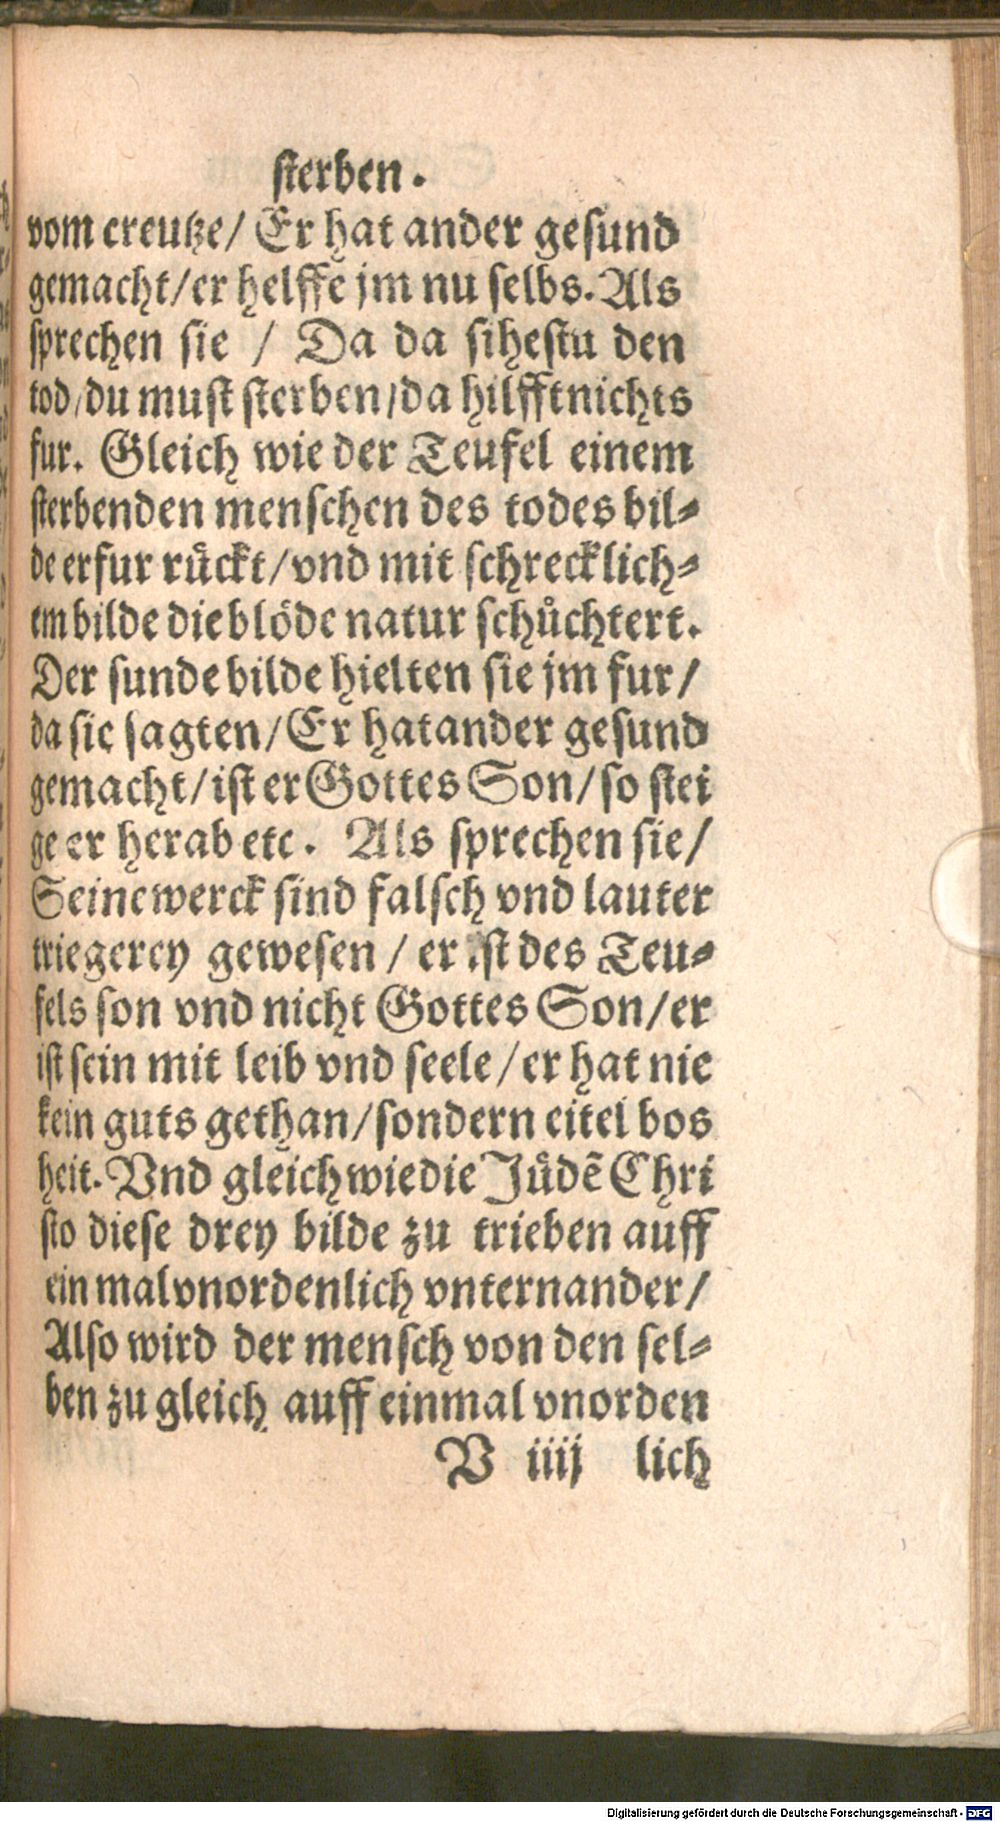 sterben.
vom creutze/ Er hat ander gesund
gemacht/er helffe jm nu selbs. Als
sprechen sie / Da da sihestu den
tod/du must sterben/da hilfft nichts
fur. Gleich wie der Teufel einem
sterbenden menschen des todes bil⸗
de erfur ruͤckt/vnd mit schrecklich⸗
em bilde die bloͤde natur schuͤchtert.
Der sunde bilde hielten sie jm fur/
da sie sagten/Er hat ander gesund
gemacht/ist er Gottes Son/so stei
ge er herab etc. Als sprechen sie/
Seine werck sind falsch vnd lauter
triegerey gewesen / er ist des Teu⸗
fels son vnd nicht Gottes Son/er
ist sein mit leib vnd seele/er hat nie
kein guts gethan/sondern eitel bos
heit. Vnd gleich wie die Juͤdẽ Chri
sto diese drey bilde zu trieben auff
ein mal vnordenlich vnternander/
Also wird der mensch von den sel⸗
ben zu gleich auff einmal vnorden
V iiij lich
Digitalisierung gefördert durch die Deutsche Forschungsgemeinschaft - DFG